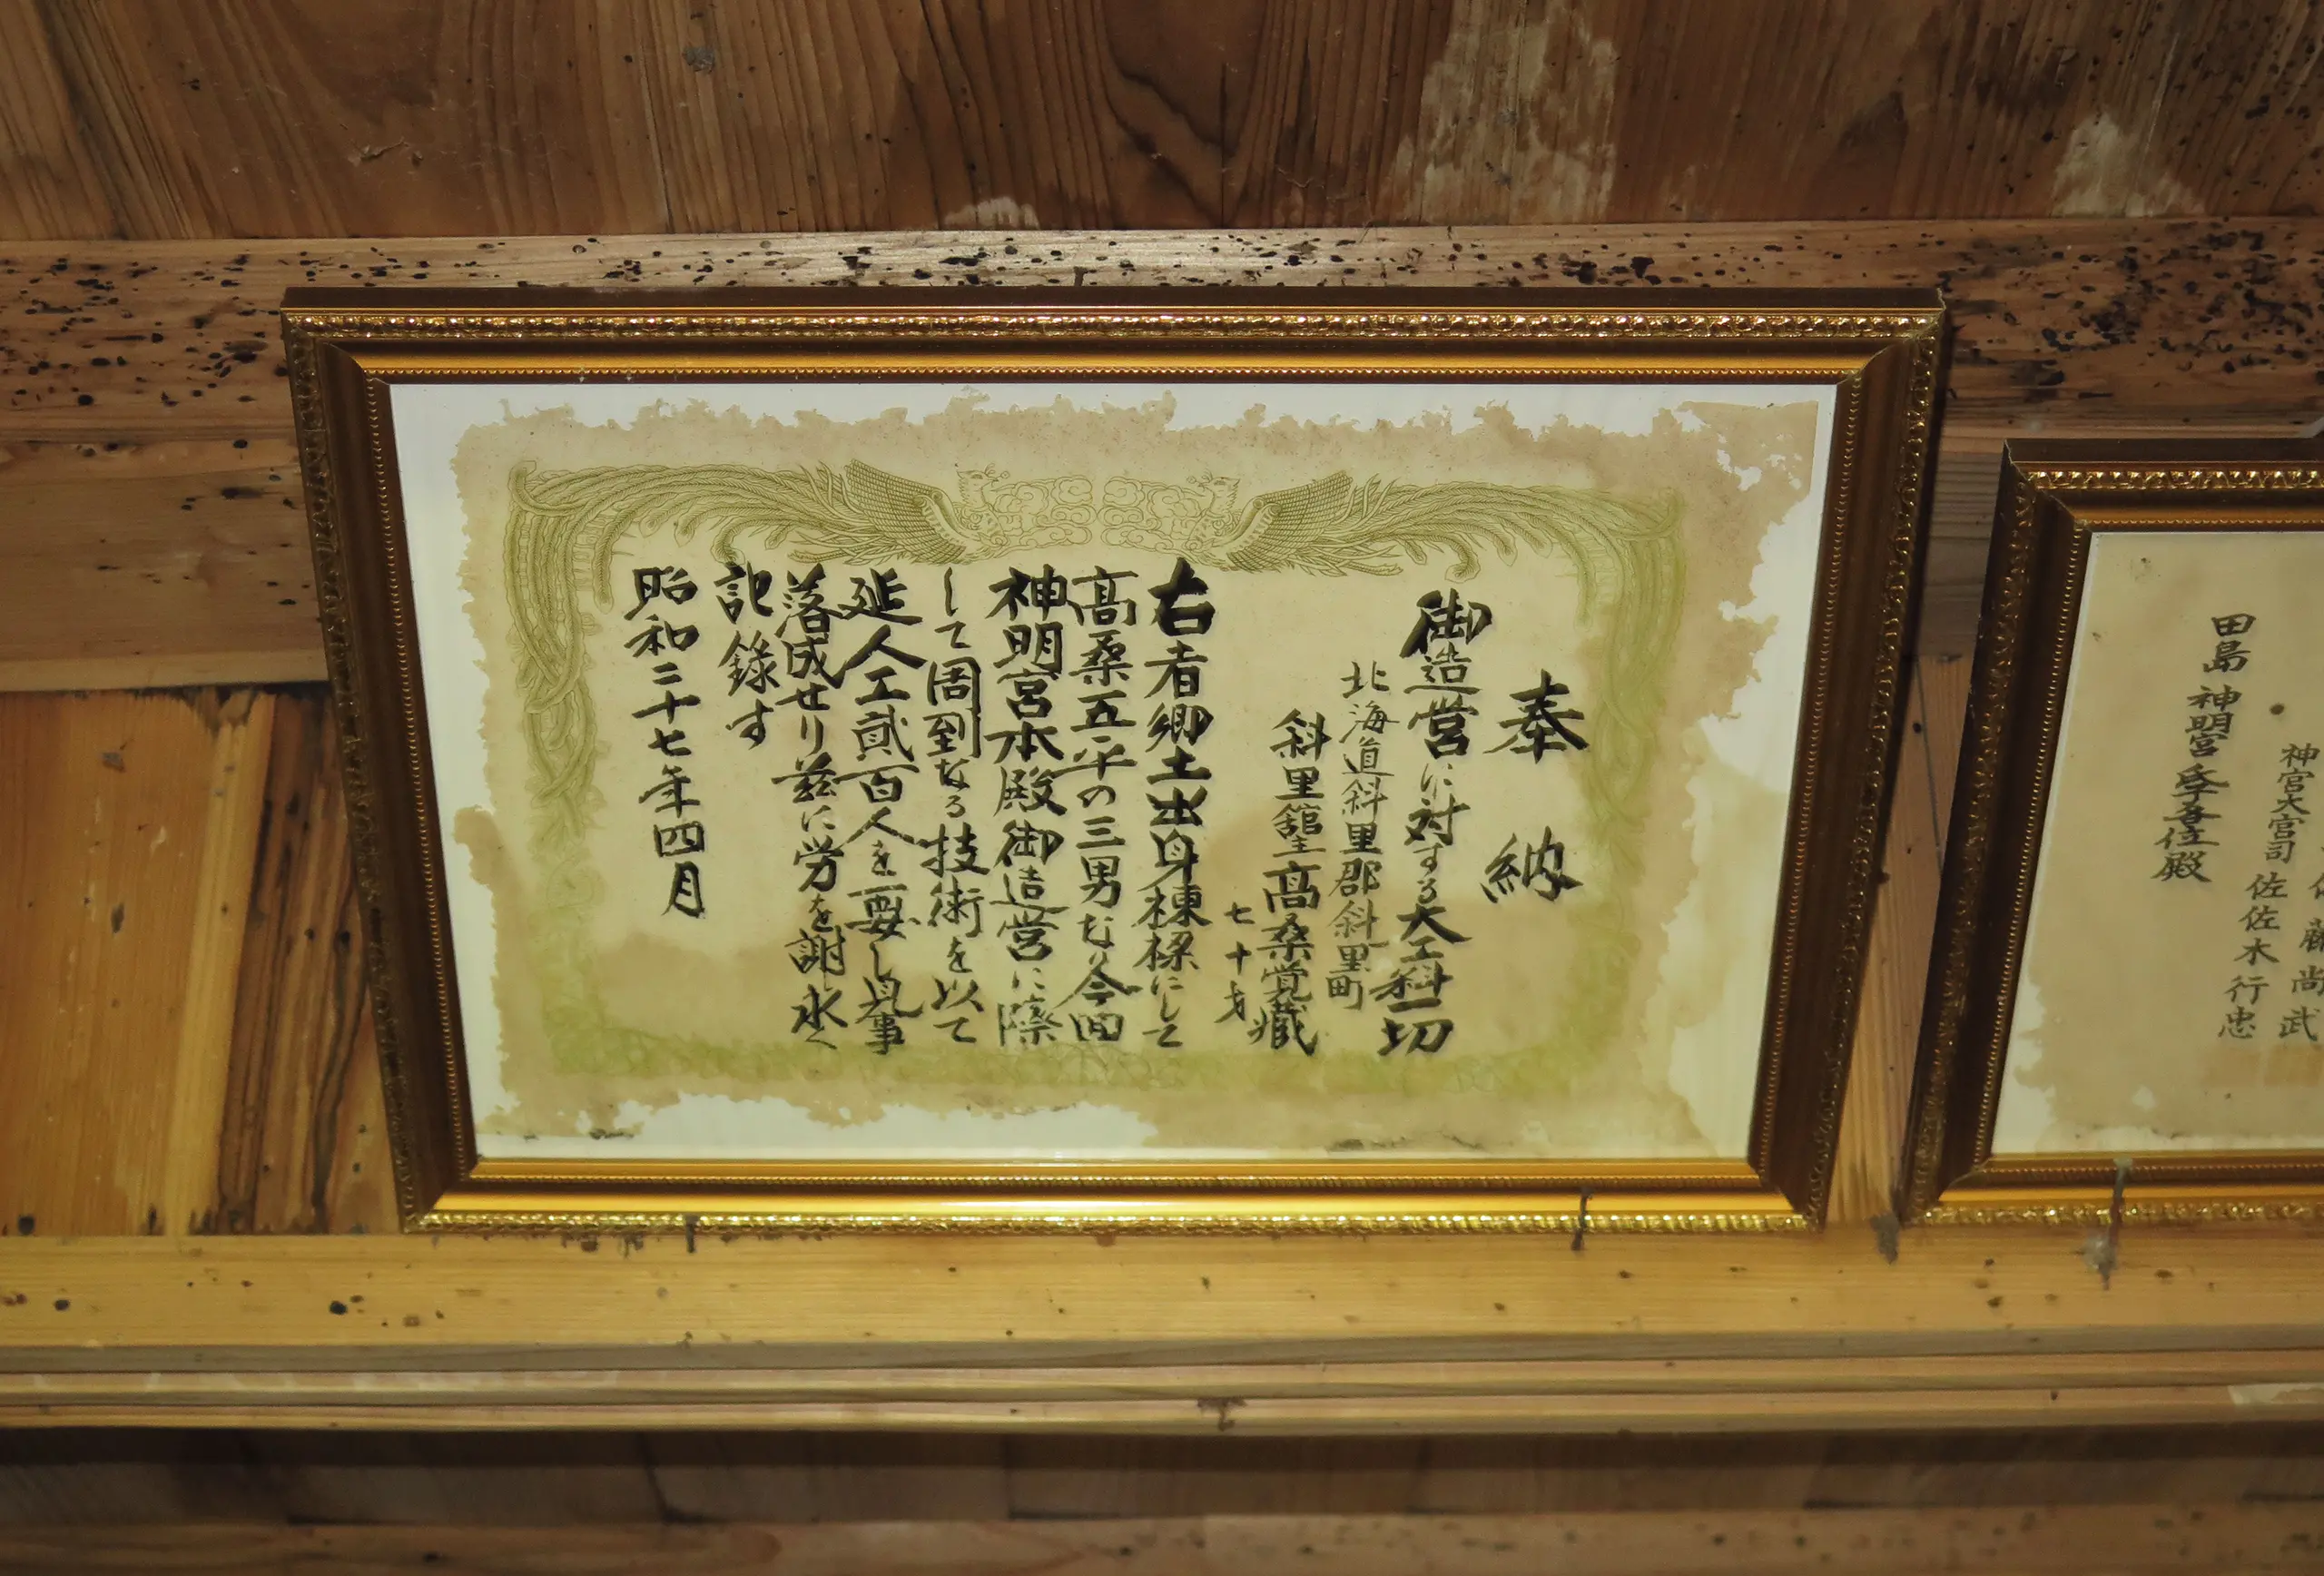 奉納
御造営に対する大工料一切
北海道斜里郡斜里町
斜里舘主高桑覚藏
七十才
右者郷土出身棟梁にして
高桑五平の三男なり今回
神明宮本殿御造営に際
して周到なる技術を以て
延人工貳百人を要し見事
落成せり茲に労を謝し永く
記録す
昭和三十七年四月
尚武
神宮大宮司佐佐木行忠
田島神明宮季吾位殿